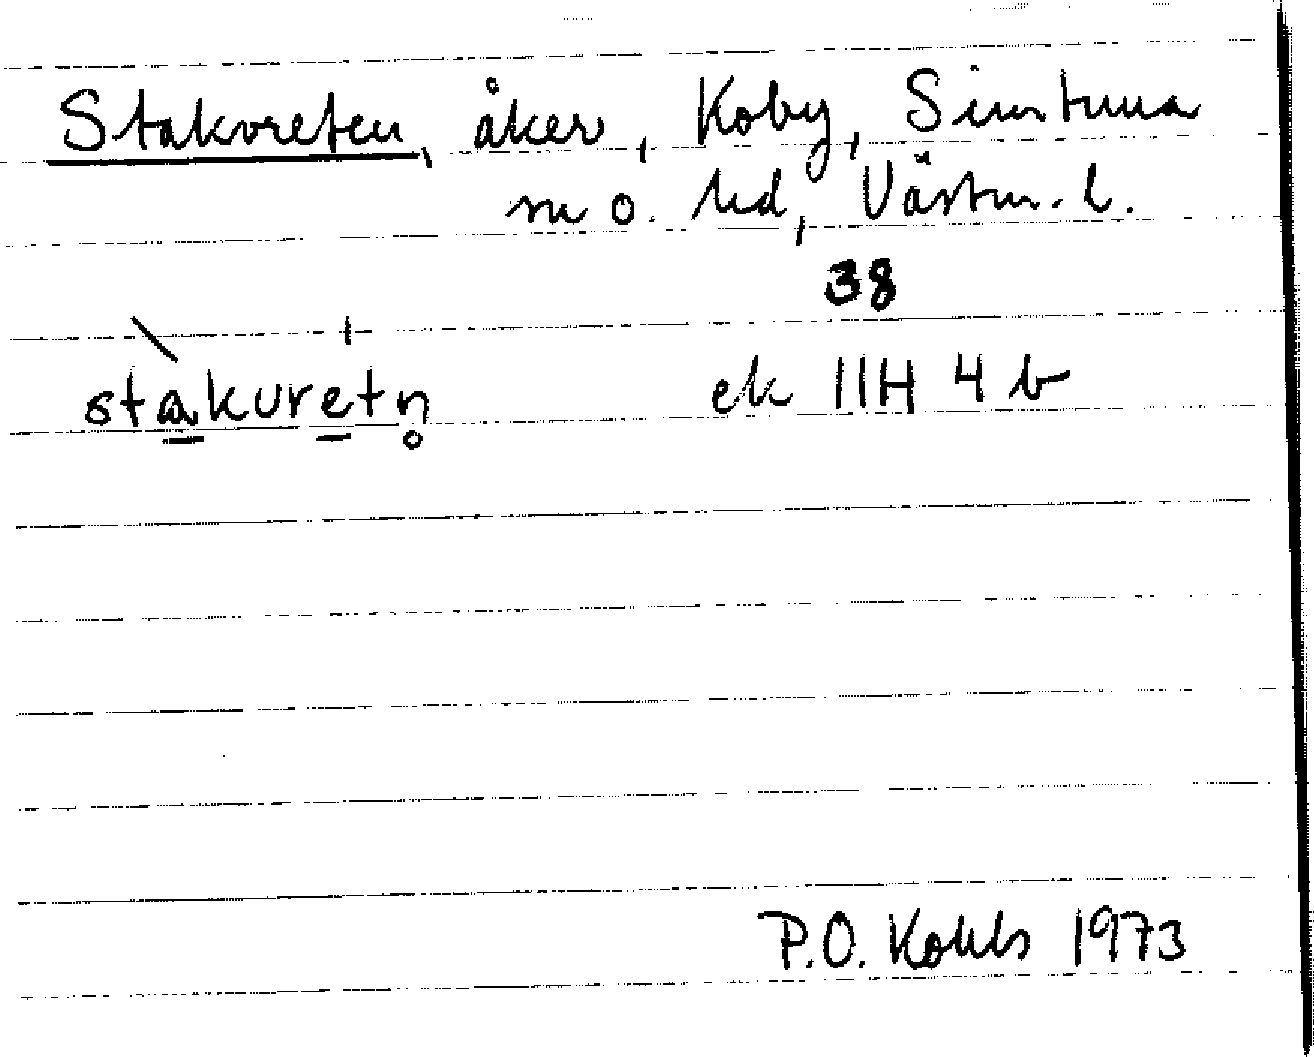 Stakvreten, åker, Koby, Simtuna
sn o. hd, Västm. l.
38
stakvretn̥ ek 11H 4 b
P.O. Kohls 1973